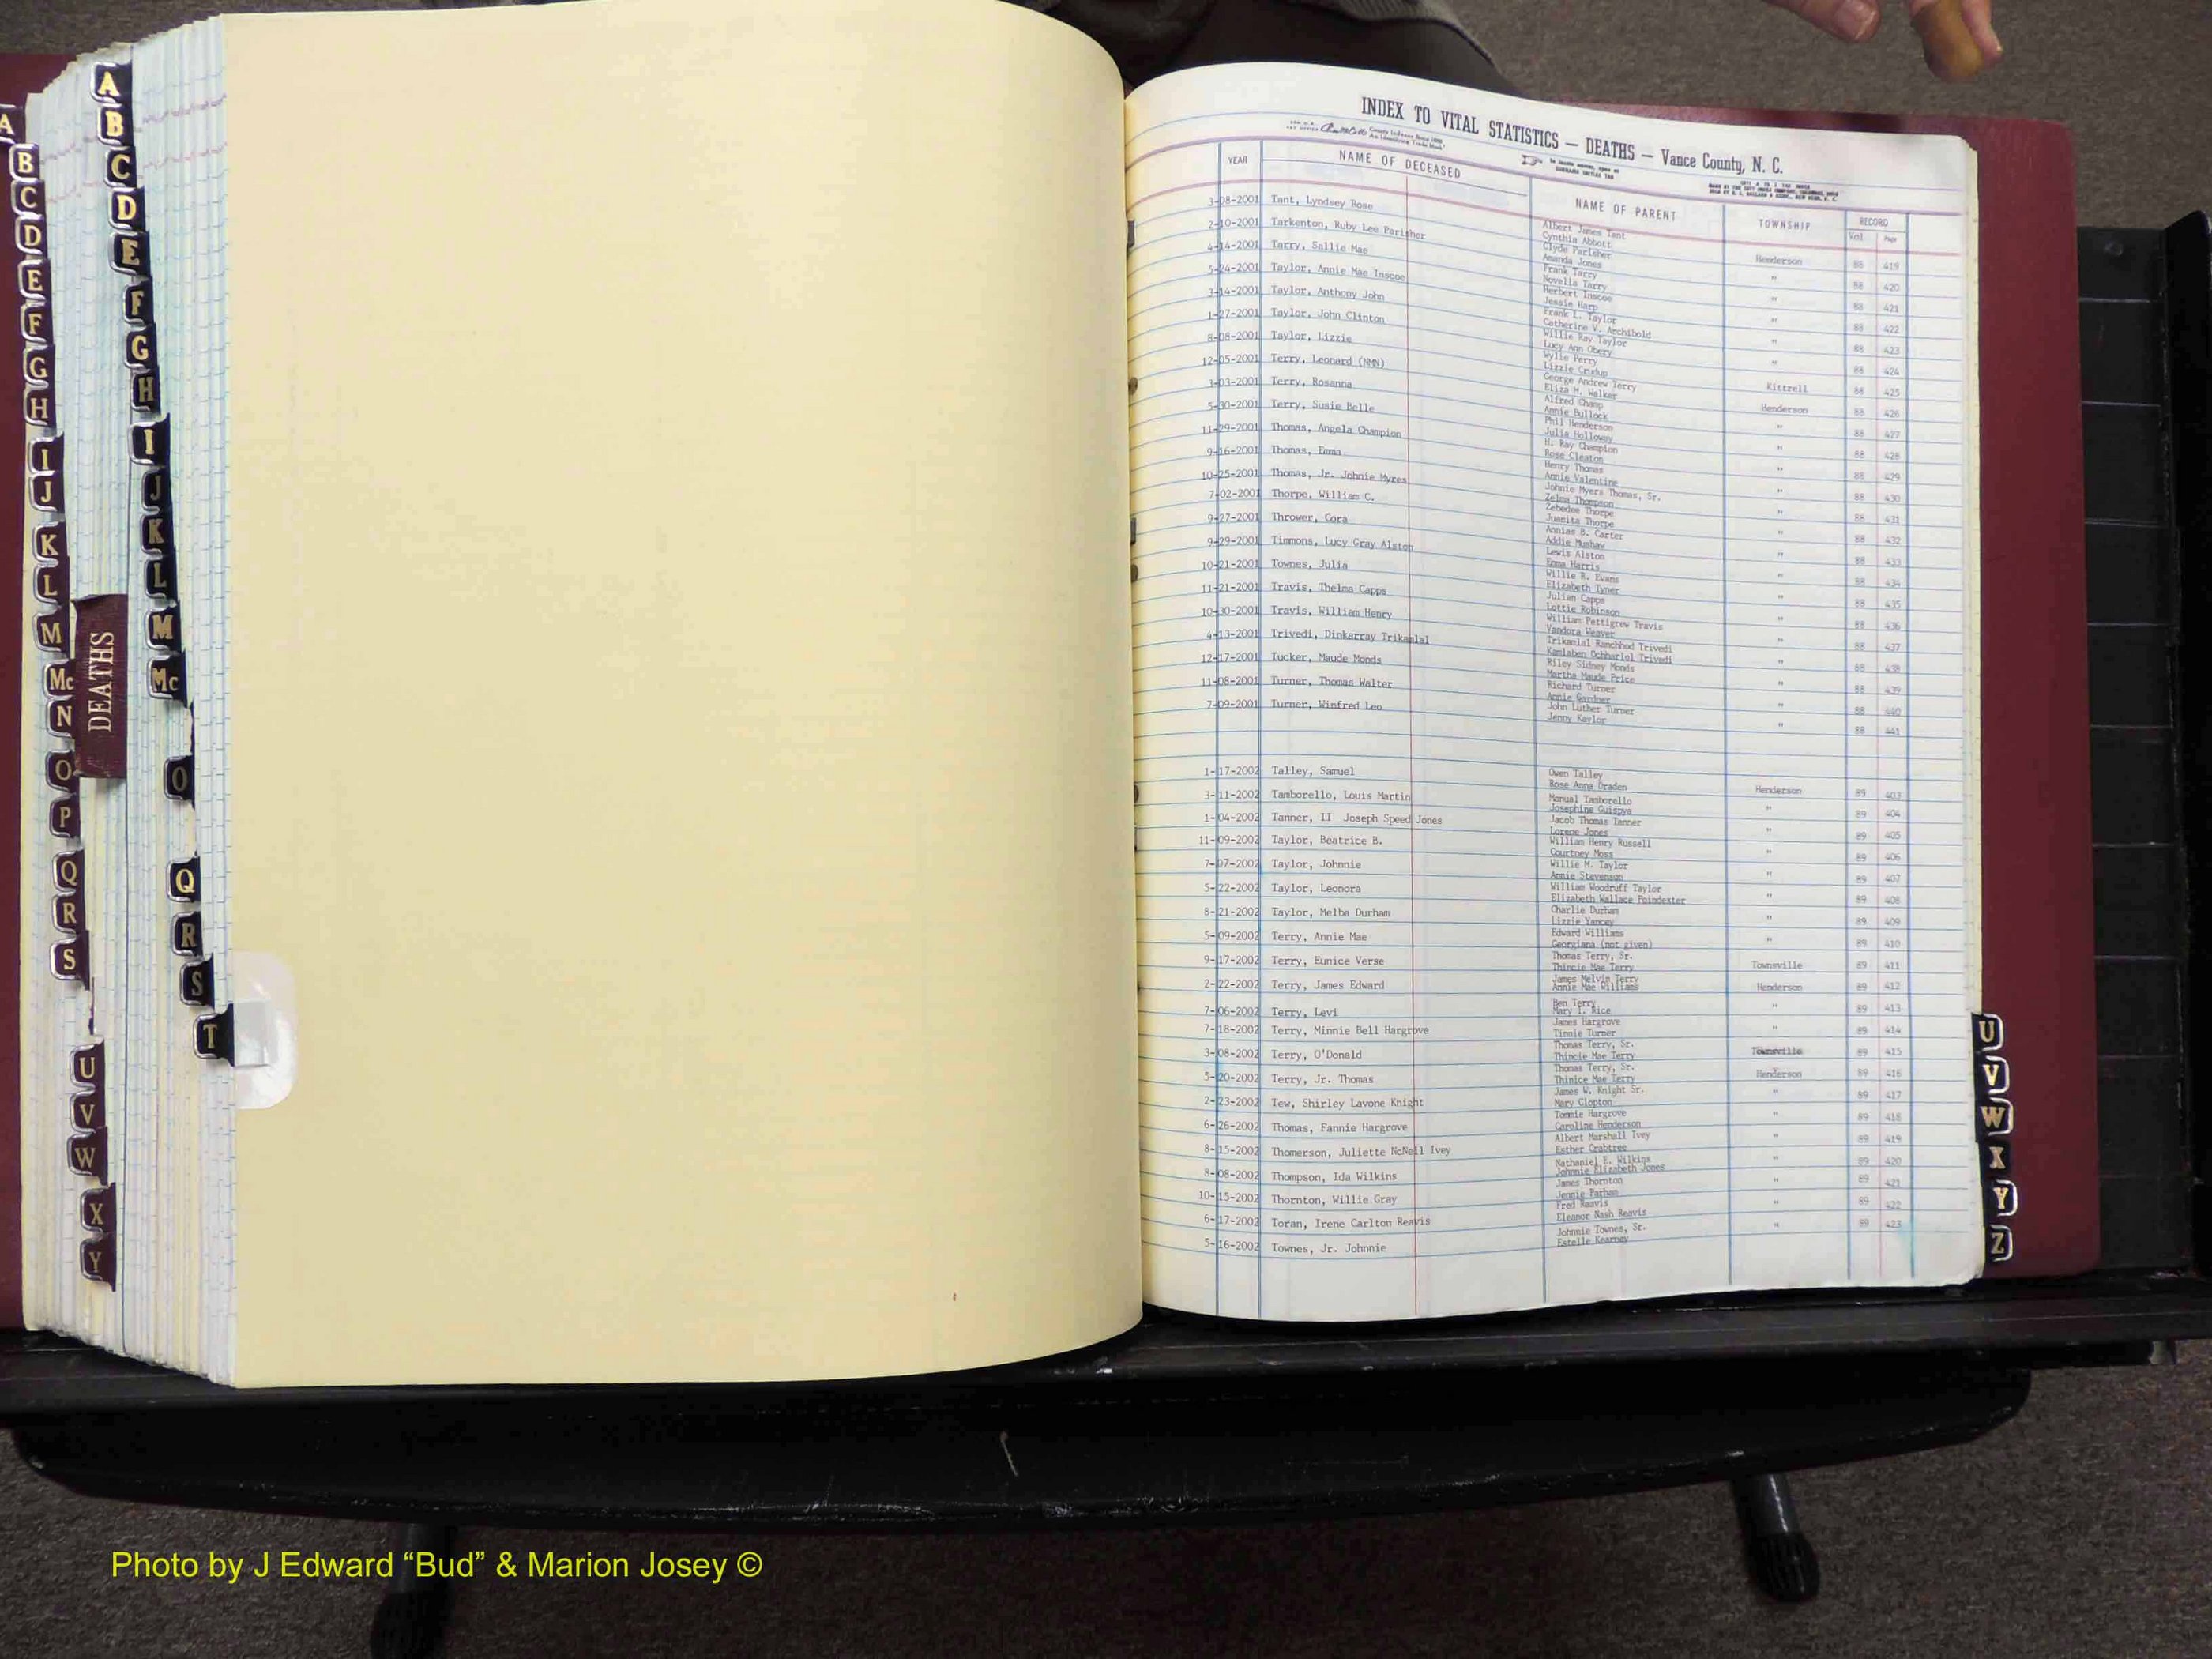 A
B
C
D
E
F
G
H
I
J
K
L
M
Mc
N
O
P
Q
R
S
U
V
W
X
Y
DEATHS
A
B
C
D
E
F
G
H
I
J
K
L
M
Mc
O
Q
R
S
T
INDEX TO VITAL STATISTICS — DEATHS — Vance County, N. C.
YEAR NAME OF DECEASED NAME OF PARENT TOWNSHIP RECORD
Vol. Page
3-08-2001 Tant, Lyndsey Rose Albert James Tant
Cynthia Abbott Henderson 88 419
2-10-2001 Tarkenton, Ruby Lee Parisher Clyde Parisher
Amanda Jones " 88 420
4-14-2001 Tarry, Sallie Mae Frank Tarry
Novella Tarry " 88 421
5-24-2001 Taylor, Annie Mae Inscoe Herbert Inscoe
Jessie Harp " 88 422
3-14-2001 Taylor, Anthony John Frank L. Taylor
Catherine V. Archibold " 88 423
1-27-2001 Taylor, John Clinton Willie Ray Taylor
Lucy Ann Obery " 88 424
8-08-2001 Taylor, Lizzie Wylie Perry
Lizzie Crudup Kittrell 88 425
12-05-2001 Terry, Leonard (NMN) George Andrew Terry
Eliza H. Walker Henderson 88 426
1-03-2001 Terry, Rosanna Alfred Champ
Annie Bullock " 88 427
5-30-2001 Terry, Susie Belle Phil Henderson
Julia Holloway " 88 428
11-29-2001 Thomas, Angela Champion H. Ray Champion
Rose Cleaton " 88 429
9-16-2001 Thomas, Emma Henry Thomas
Annie Valentine " 88 430
10-25-2001 Thomas, Jr. Johnie Myres Johnie Myers Thomas, Sr.
Zelma Thompson " 88 431
7-02-2001 Thorpe, William C. Zebedee Thorpe
Juanita Thorpe " 88 432
9-27-2001 Thrower, Cora Annias B. Carter
Addie Mushaw " 88 433
9-29-2001 Timmons, Lucy Gray Alston Lewis Alston
Emma Harris " 88 434
10-21-2001 Townes, Julia Willie R. Evans
Elizabeth Tyner " 88 435
11-21-2001 Travis, Thelma Capps Julian Capps
Lottie Robinson " 88 436
10-30-2001 Travis, William Henry William Pettigrew Travis
Vandora Weaver " 88 437
4-13-2001 Trivedi, Dinkarray Trikamlal Trikamlal Ranchhod Trivedi
Kamlaben Trivedi " 88 438
12-17-2001 Tucker, Maude Monds Riley Sidney Monds
Martha Maude Price " 88 439
11-08-2001 Turner, Thomas Walter Richard Turner
Annie Gardner " 88 440
7-09-2001 Turner, Winfred Leo John Luther Turner
Jenny Kaylor " 88 441
1-17-2002 Talley, Samuel Owen Talley
Rose Anna Draden Henderson 89 403
3-11-2002 Tamborello, Louis Martin Manual Tamborello
Josephine Guispya " 89 404
1-04-2002 Tanner, II Joseph Speed Jones Jacob Thomas Tanner
Lorene Jones " 89 405
11-09-2002 Taylor, Beatrice B. William Henry Russell
Courtney Moss " 89 406
7-07-2002 Taylor, Johnnie Willie M. Taylor
Annie Stevenson " 89 407
5-22-2002 Taylor, Leonora William Woodruff Taylor
Elizabeth Wallace Poindexter " 89 408
8-21-2002 Taylor, Melba Durham Charlie Durham
Lizzie Yancey " 89 409
5-09-2002 Terry, Annie Mae Edward Williams
Georgiana (not given) " 89 410
9-17-2002 Terry, Eunice Verse Thomas Terry, Sr.
Thincie Mae Terry Townsville 89 411
2-22-2002 Terry, James Edward James Melvin Terry
Annie Mae Williams Henderson 89 412
7-06-2002 Terry, Levi Ben Terry
Mary T. Rice " 89 413
7-18-2002 Terry, Minnie Bell Hargrove James Hargrove
Tinnie Turner " 89 414
3-08-2002 Terry, O'Donald Thomas Terry, Sr.
Thincie Mae Terry Townsville 89 415
5-20-2002 Terry, Jr. Thomas Thomas Terry, Sr.
Thinice Mae Terry Henderson 89 416
2-23-2002 Tew, Shirley Lavone Knight James W. Knight Sr.
Mary Clopton " 89 417
6-26-2002 Thomas, Fannie Hargrove Tommie Hargrove
Caroline Henderson " 89 418
8-15-2002 Thomerson, Juliette McNeil Ivey Albert Marshall Ivey
Esther Crabtree " 89 419
8-08-2002 Thompson, Ida Wilkins Nathaniel E. Wilkins
Johnnie Elizabeth Jones " 89 420
10-15-2002 Thornton, Willie Gray James Thornton
Jennie Parham " 89 421
6-17-2002 Toran, Irene Carlton Reavis Fred Reavis
Eleanor Nash Reavis " 89 422
5-16-2002 Townes, Jr. Johnnie Johnnie Townes, Sr.
Estelle Kearney " 89 423
U
V
W
X
Y
Z
Photo by J Edward “Bud” & Marion Josey ©